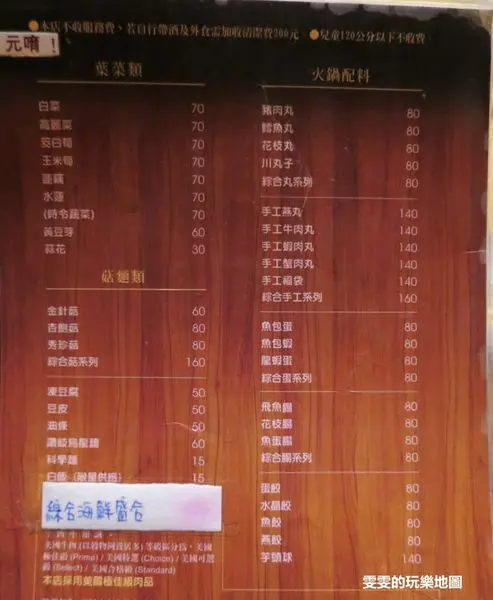 ●本店不收服務費、若自行帶酒及外食需加收清潔費200元 ●兒童120公分以下不收費
元唷！
葉菜類
白菜 70
高麗菜 70
茭白筍 70
玉米筍 70
蓮藕 70
水蓮 70
(時令蔬菜) 70
黃豆芽 60
蒜花 30
菇麵類
金針菇 60
杏鮑菇 80
秀珍菇 80
綜合菇系列 160
凍豆腐 50
豆皮 50
油條 50
讚岐烏龍麵 60
科學麵 15
白飯 (限量供應) 15
綜合海鮮盛合
美國牛肉
極佳級 (Prime) / 美國特選 (Choice) / 美國可選
級 (Select) / 美國合格級 (Standard)
本店採用美國極佳級肉品
火鍋配料
豬肉丸 80
鱈魚丸 80
花枝丸 80
川丸子 80
綜合丸系列 80
手工燕丸 140
手工牛肉丸 140
手工蝦肉丸 140
手工蟹肉丸 140
手工福袋 140
綜合手工系列 160
魚包蛋 80
魚包蝦 80
龍蝦蛋 80
綜合蛋系列 80
飛魚腸 80
花枝腸 80
魚蛋腸 80
綜合腸系列 80
蛋餃 80
水晶餃 80
魚餃 80
燕餃 80
芋頭球 140
雯雯的玩樂地圖